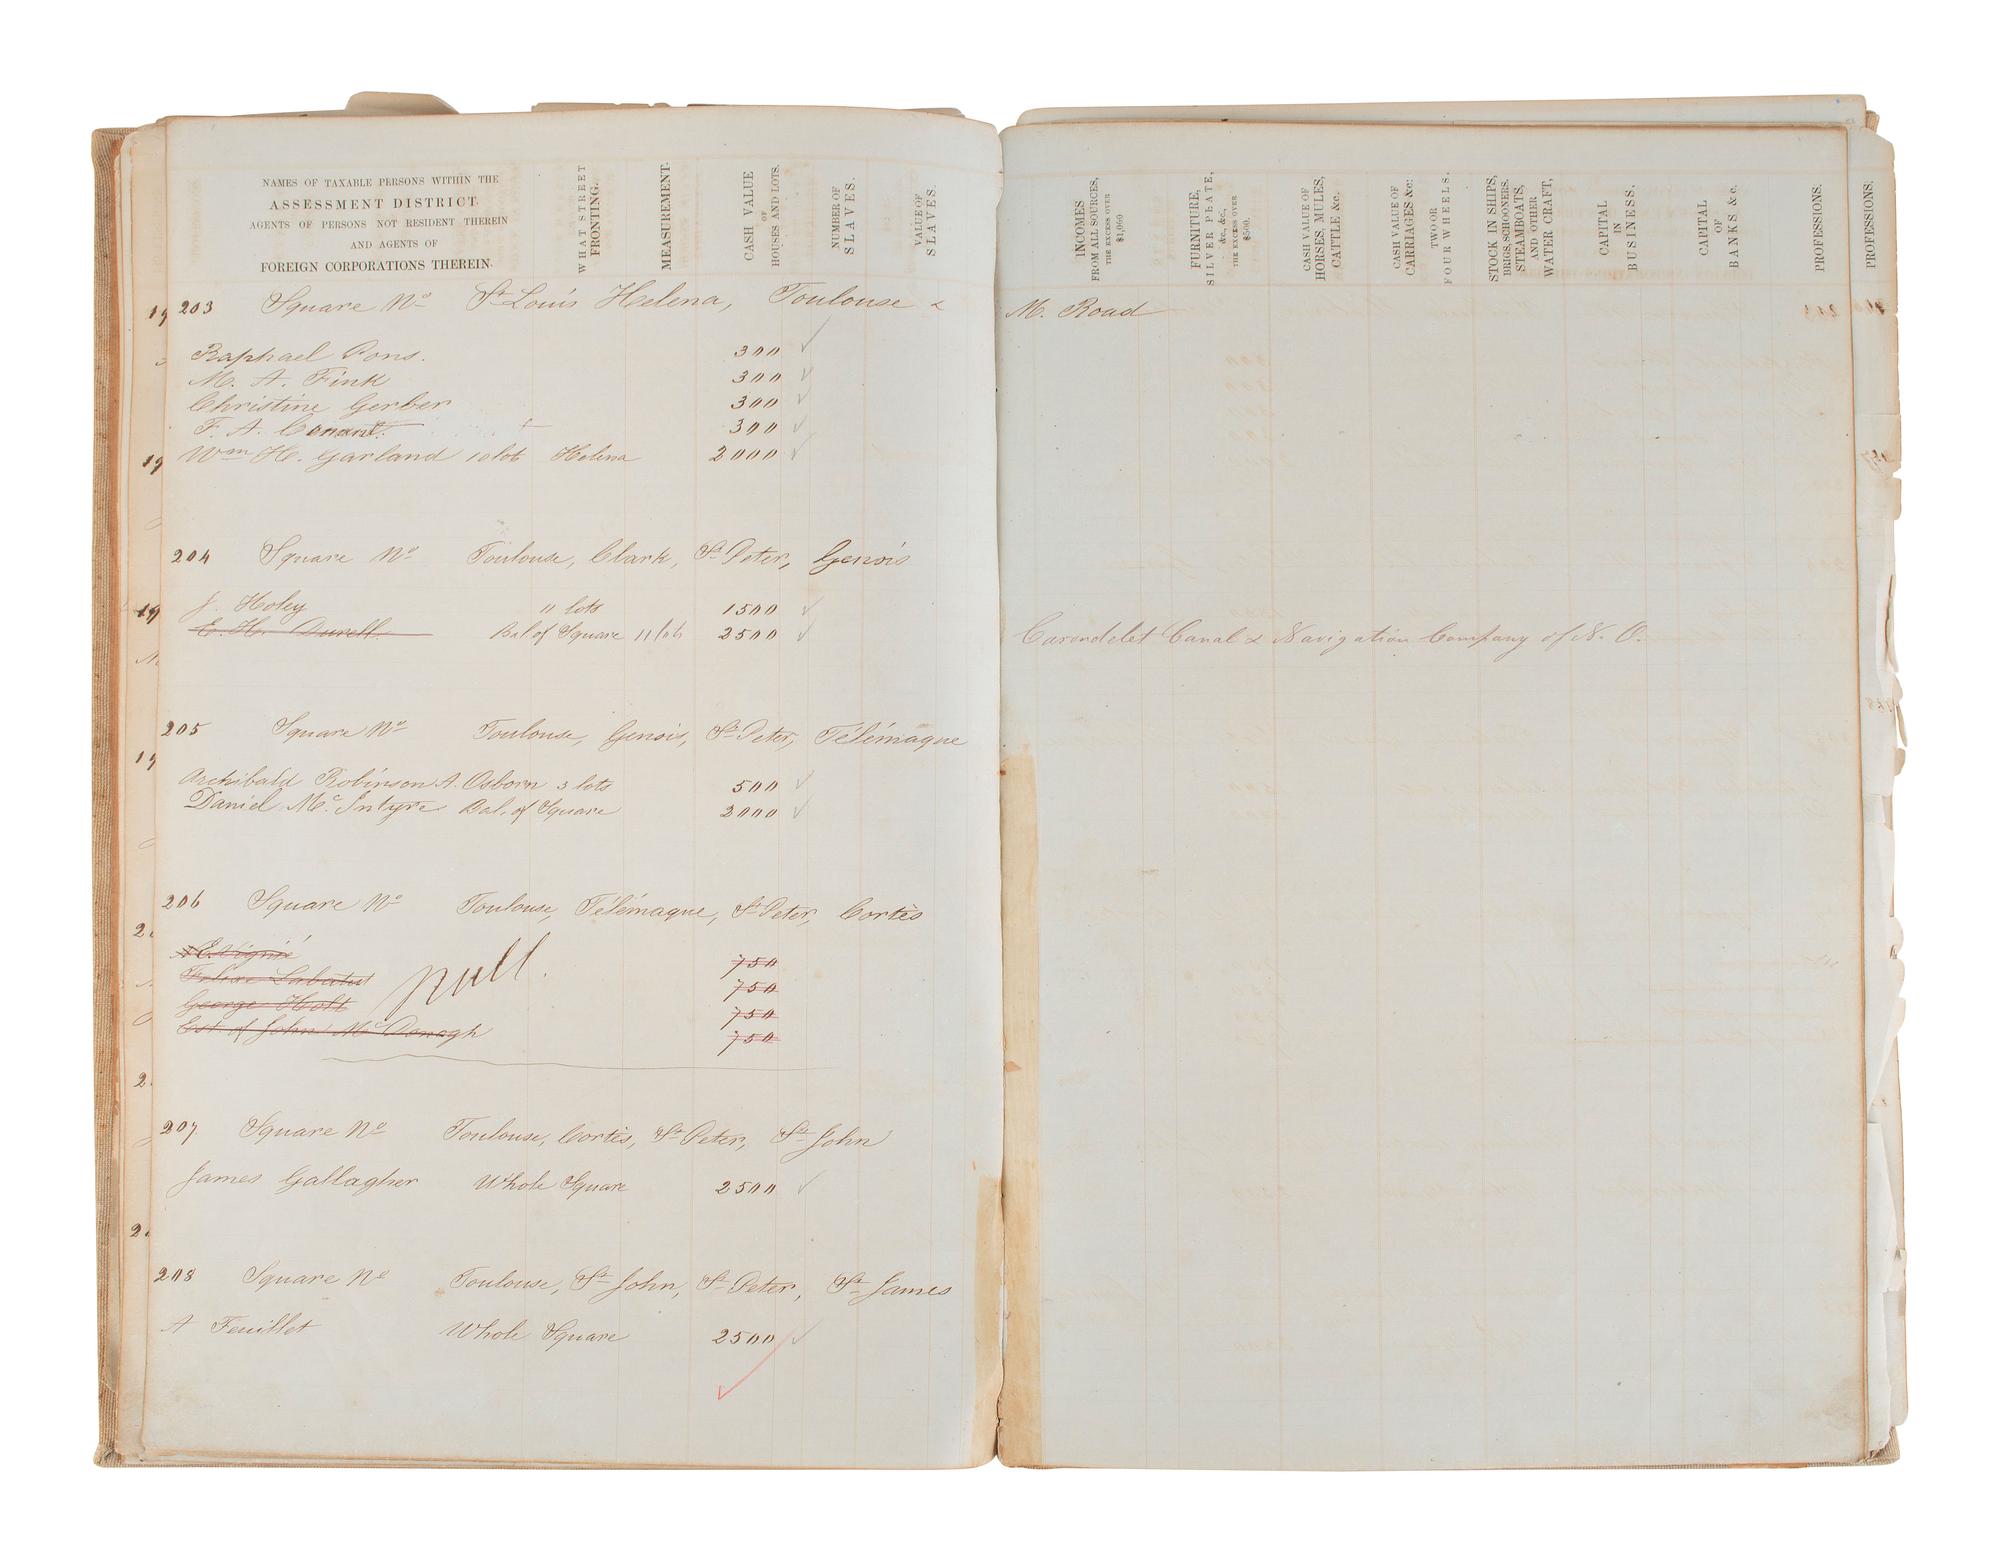 NAMES OF TAXABLE PERSONS WITHIN THE
ASSESSMENT DISTRICT.
AGENTS OF PERSONS NOT RESIDENT THEREIN
AND AGENTS OF
FOREIGN CORPORATIONS THEREIN.
WHAT STREET FRONTING.
MEASUREMENT.
CASH VALUE OF HOUSES AND LOTS.
NUMBER OF SLAVES.
VALUE OF SLAVES.
203 Square No St Louis Helena, Toulouse &
Raphael Pons. 300
M. A. Fink 300
Christine Gerber 300
F. A. Conant. 300
Wm H. Garland 10 lots Helena 2000
204 Square No Toulouse, Clark, St Peter, Genois
J. Holey " lots 1500
E. H. Durell Bal of Square 11 lots 2500
205 Square No Toulouse, Genois, St Peter, Télémaque
Archibald Robinson A. Osborn 3 lots 500
Daniel McIntyre Bal. of Square 2000
206 Square No Toulouse, Télémaque, St Peter, Cortès
E. Vignié 750
Felix Labatut 750
George Holt 750
Est of John McDonogh 750
null.
207 Square No Toulouse, Cortès, St Peter, St John
James Gallagher Whole Square 2500
208 Square No Toulouse, St John, St Peter, St James
A Feuillet Whole Square 2500
INCOMES FROM ALL SOURCES, THE EXCESS OVER $1,000
FURNITURE, SILVER PLATE, &c., &c., THE EXCESS OVER $500.
CASH VALUE OF HORSES, MULES, CATTLE &c.
CASH VALUE OF CARRIAGES &c: TWO OR FOUR WHEELS.
STOCK IN SHIPS, BRIGS, SCHOONERS, STEAMBOATS, AND OTHER WATER CRAFT,
CAPITAL IN BUSINESS.
CAPITAL OF BANKS &c.
PROFESSIONS.
PROFESSIONS.
M. Road
Carondelet Canal & Navigation Company of N. O.